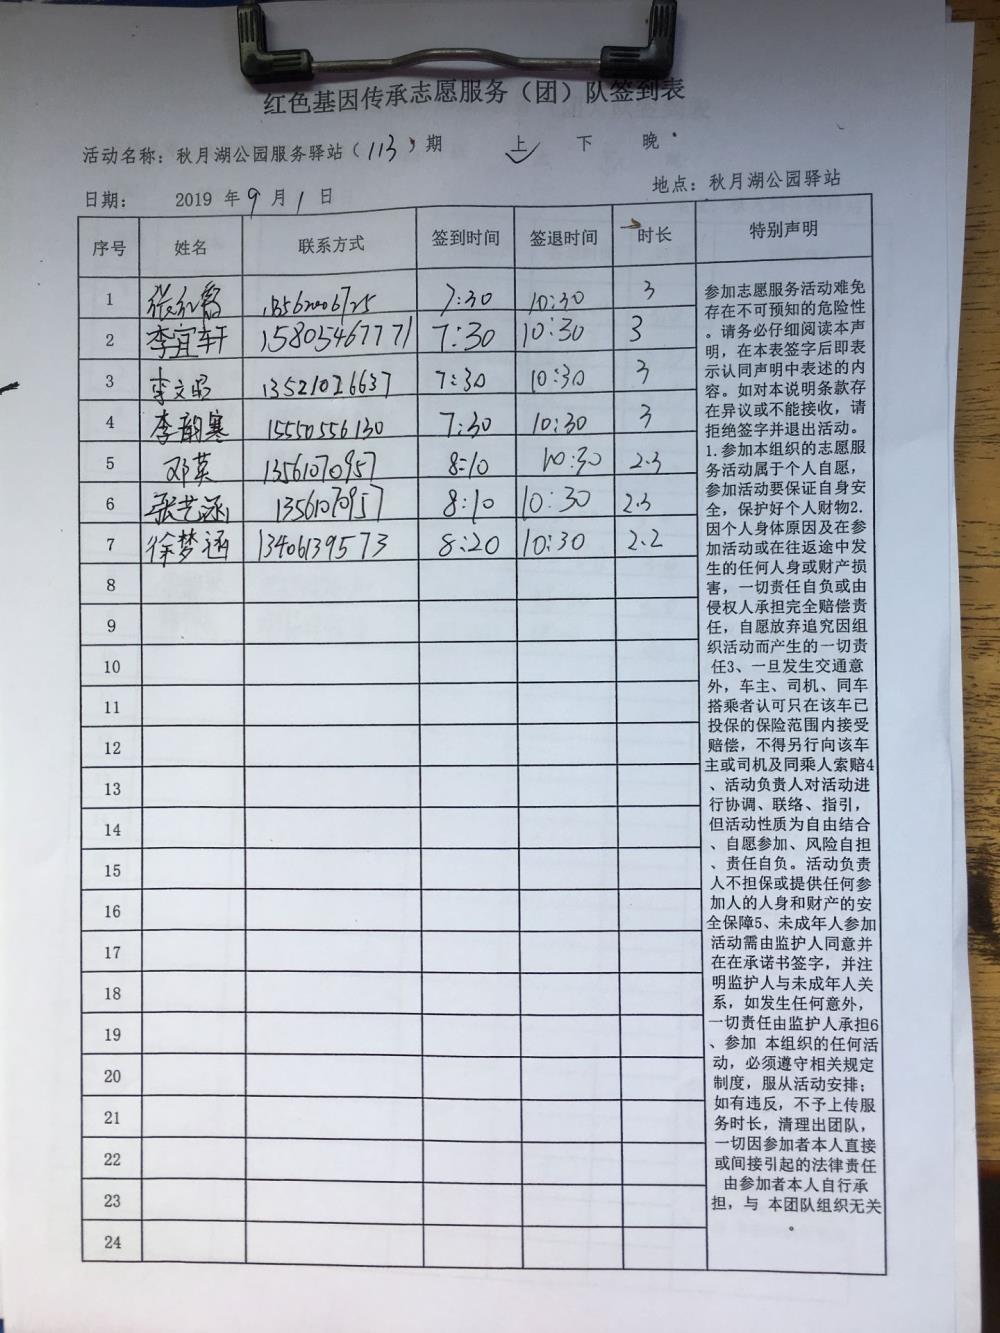 红色基因传承志愿服务（团）队签到表
活动名称：秋月湖公园服务驿站（113）期 上 下 晚
日期： 2019 年 9 月 1 日 地点：秋月湖公园驿站
序号 姓名 联系方式 签到时间 签退时间 时长 特别声明
1 7:30 10:30 3
2 李宜轩 15805467771 7:30 10:30 3
3 李文 13521026637 7:30 10:30 3
4 李韵寒 15550556130 7:30 10:30 3
5 邓英 13561070957 8:10 10:30 2.3
6 张艺涵 13561070957 8:10 10:30 2.3
7 徐梦涵 13406139573 8:20 10:30 2.2
8
9
10
11
12
13
14
15
16
17
18
19
20
21
22
23
24
参加志愿服务活动难免
存在不可预知的危险性
。请务必仔细阅读本声
明，在本表签字后即表
示认同声明中表述的内
容。如对本说明条款存
在异议或不能接收，请
拒绝签字并退出活动。
1.参加本组织的志愿服
务活动属于个人自愿，
参加活动要保证自身安
全，保护好个人财物2.
因个人身体原因及在参
加活动或在往返途中发
生的任何人身或财产损
害，一切责任自负或由
侵权人承担完全赔偿责
任，自愿放弃追究因组
织活动而产生的一切责
任3、一旦发生交通意
外，车主、司机、同车
搭乘者认可只在该车已
投保的保险范围内接受
赔偿，不得另行向该车
主或司机及同乘人索赔4
、活动负责人对活动进
行协调、联络、指引，
但活动性质为自由结合
、自愿参加、风险自担
、责任自负。活动负责
人不担保或提供任何参
加人的人身和财产的安
全保障5、未成年人参加
活动需由监护人同意并
在在承诺书签字，并注
明监护人与未成年人关
系，如发生任何意外，
一切责任由监护人承担6
、参加 本组织的任何活
动，必须遵守相关规定
制度，服从活动安排；
如有违反，不予上传服
务时长，清理出团队，
一切因参加者本人直接
或间接引起的法律责任
由参加者本人自行承
担，与 本团队组织无关
。